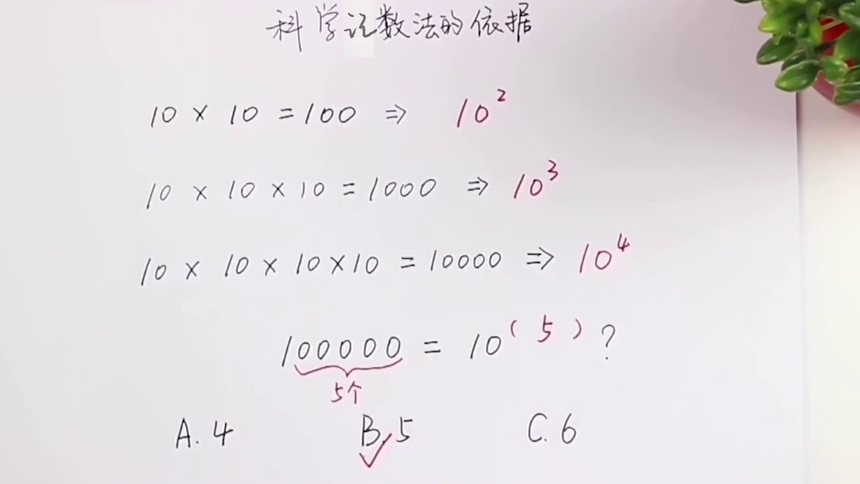 科学记数法的依据
10 × 10 = 100 ⇒ 10²
10 × 10 × 10 = 1000 ⇒ 10³
10 × 10 × 10 × 10 = 10000 ⇒ 10⁴
100000 = 10⁽⁵⁾ ?
5个
A. 4 B. 5 C. 6